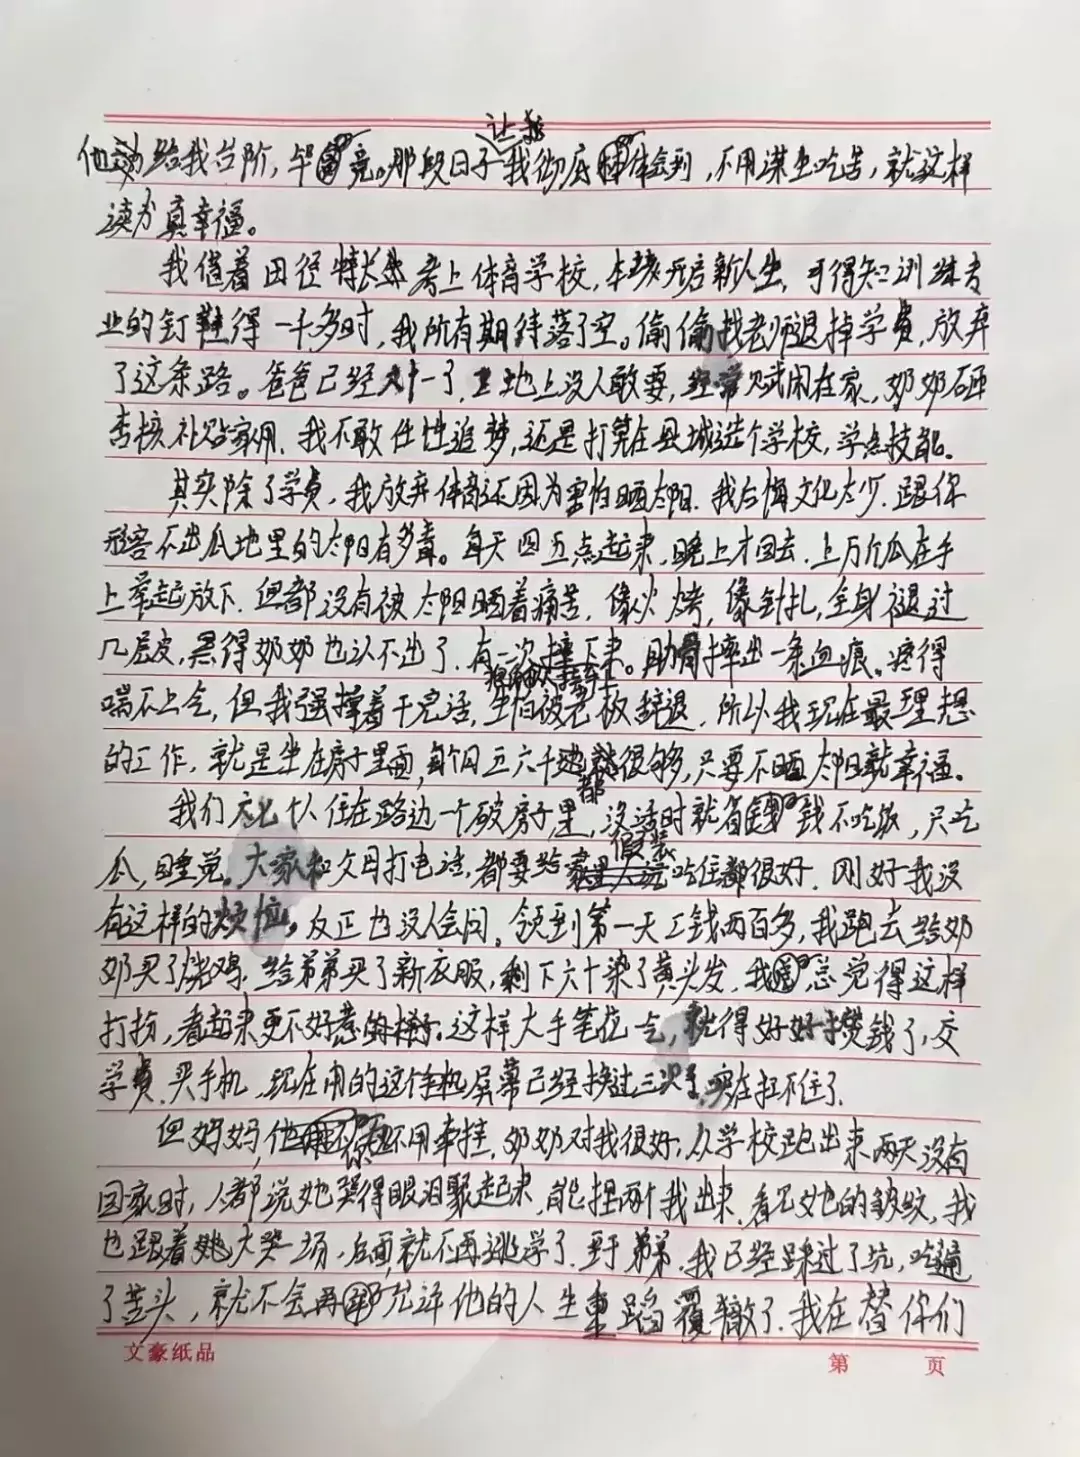 让我
他动给我台阶，毕竟。那段日子我彻底体会到，不用谋生吃苦，就这样
读书真幸福。
我借着田径特长生考上体育学校，本该开启新人生，可得知训练专
业的钉鞋得一千多时，我所有期待落了空。偷偷找老师退掉学费，放弃
了这条路。爸爸已经六十一了，工地上没人敢要，经常赋闲在家，奶奶砸
杏核补贴家用，我不敢任性追梦，还是打算在县城选个学校，学点技能。
其实除了学费，我放弃体育还因为害怕晒太阳。我后悔文化太少，跟你
形容不出瓜地里的太阳有多毒。每天四五点起来，晚上才回去，上万个瓜在手
上拿起放下，但都没有被太阳晒着痛苦，像火烤，像针扎，全身褪过
几层皮，黑得奶奶也认不出了，有一次摔下来。肋骨摔出一条血痕。疼得
喘不上气，但我强撑着干完活，生怕被老板辞退，所以我现在最理想
的工作，就是坐在房子里面，每个月五六千就很够，只要不晒太阳就幸福。
都
我们六七个人住在路边一个破房子里，没活时就省钱不吃饭，只吃
假装
瓜，睡觉。大家和父母打电话，都要给家里人说吃住都很好，刚好我没
有这样的烦恼。反正也没人会问。领到第一天工钱两百多，我跑去给奶
奶买了烧鸡，给弟弟买了新衣服，剩下六十染了黄头发，我总觉得这样
打扮，看起来更不好惹的样子。这样大手笔一气，就得好好攒钱了，交
学费，买手机，现在用的这个手机屏幕已经换过三次了，实在扛不住了。
但妈妈，你还不用牵挂，奶奶对我很好，从学校跑出来两天没有
回家时，人都说她哭得眼泪聚起来，能捏两个我出来，看见她的皱纹，我
也跟着她大哭一场，后面就不再逃学了。至于弟弟，我已经踩过了坑，吃遍
了苦头，就不会再允许他的人生重蹈覆辙了。我在替你们
文豪纸品
第 页